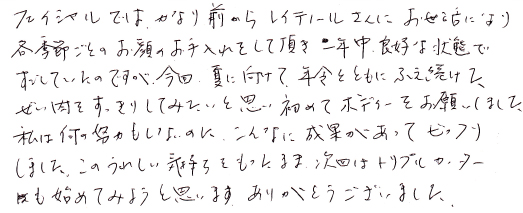 フェイシャルでは、かなり前からレイティールさんにお世話になり
各季節ごとのお顔のお手入れをして頂き一年中良好な状態で
すごしていたのですが、今回、夏に向けて、年令とともにふえ続けた
ぜい肉をすっきりしてみたいと思い初めてボディーをお願いしました
私は何の努力もしないのに、こんなに成果があってビックリ
しました。このうれしい気持ちをもったまま、次回はトリプルカッター
も始めてみようと思います。ありがとうございました。